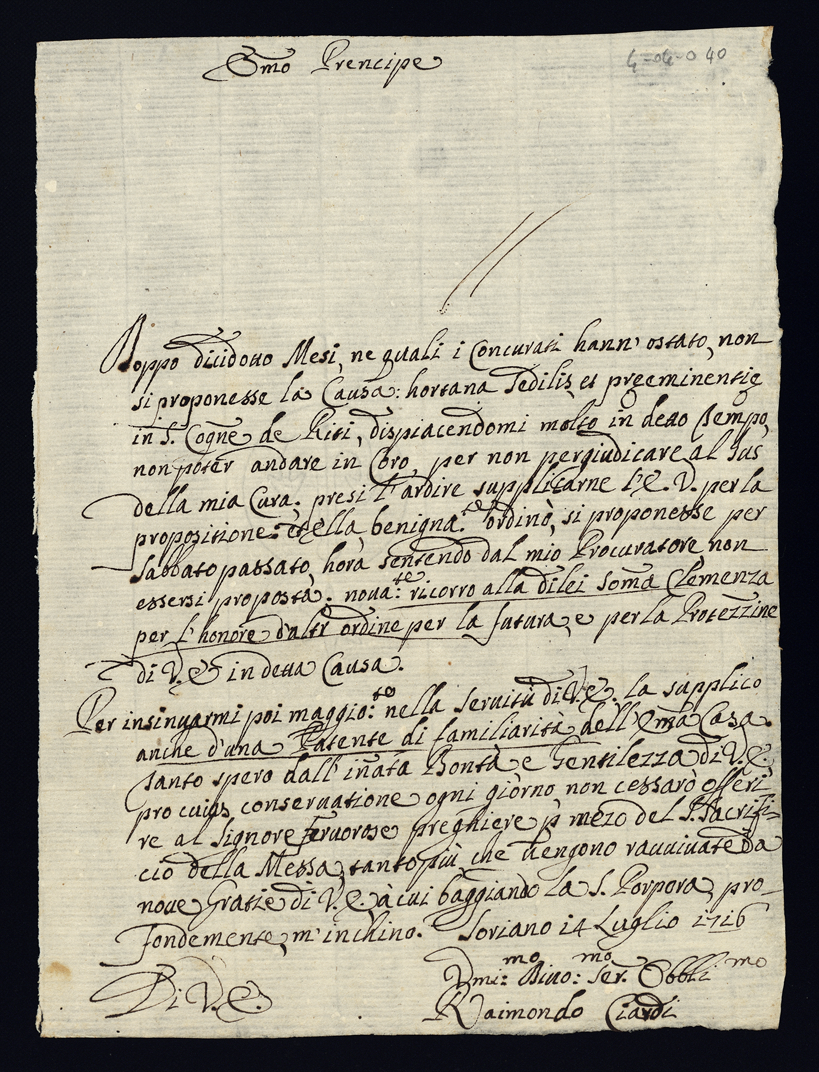 Emo Prencipe
4-04-0 40
Doppo dicidotto Mesi, ne quali i Concurati hann' ostato, non
si proponesse la Causa: hortana Sedilis, et preeminentie
in S. Cogne de Riti, dispiacendomi molto in detto tempo,
non poter andare in Coro, per non pergiudicare al Jus
della mia Cura, presi l'ardire supplicarne l'E. V. per la
propositione, et ella benigna:te ordinò, si proponesse per
Sabbato passato, hora sentendo dal mio Procuratore, non
essersi proposta. nova:te ricorro alla di lei soma Clemenza
per l'honore d'altr' ordine per la futura, e per la Protezzine
di V.E. in detta Causa.
Per insinuarmi poi maggio:te nella servitù di V.E. la supplico
anche d'una Patente di familiarità dell' Ema Casa.
tanto spero dall' inata Bontà e Gentilezza di V.E.
pro cuius conservatione ogni giorno non cessarò offeri
re al Signore fervorose preghiere p mezo del S. Sacrifi=
cio della Messa, tanto più che vengono ravvivate da
nove Gratie di V.E. à cui baggiando la S. Porpora, pro-
fondemente, m'inchino. Soriano 14 Luglio 1716
Di V.E.
Vmi:mo Divo:mo Ser. Obbli mo
Raimondo Ciardi